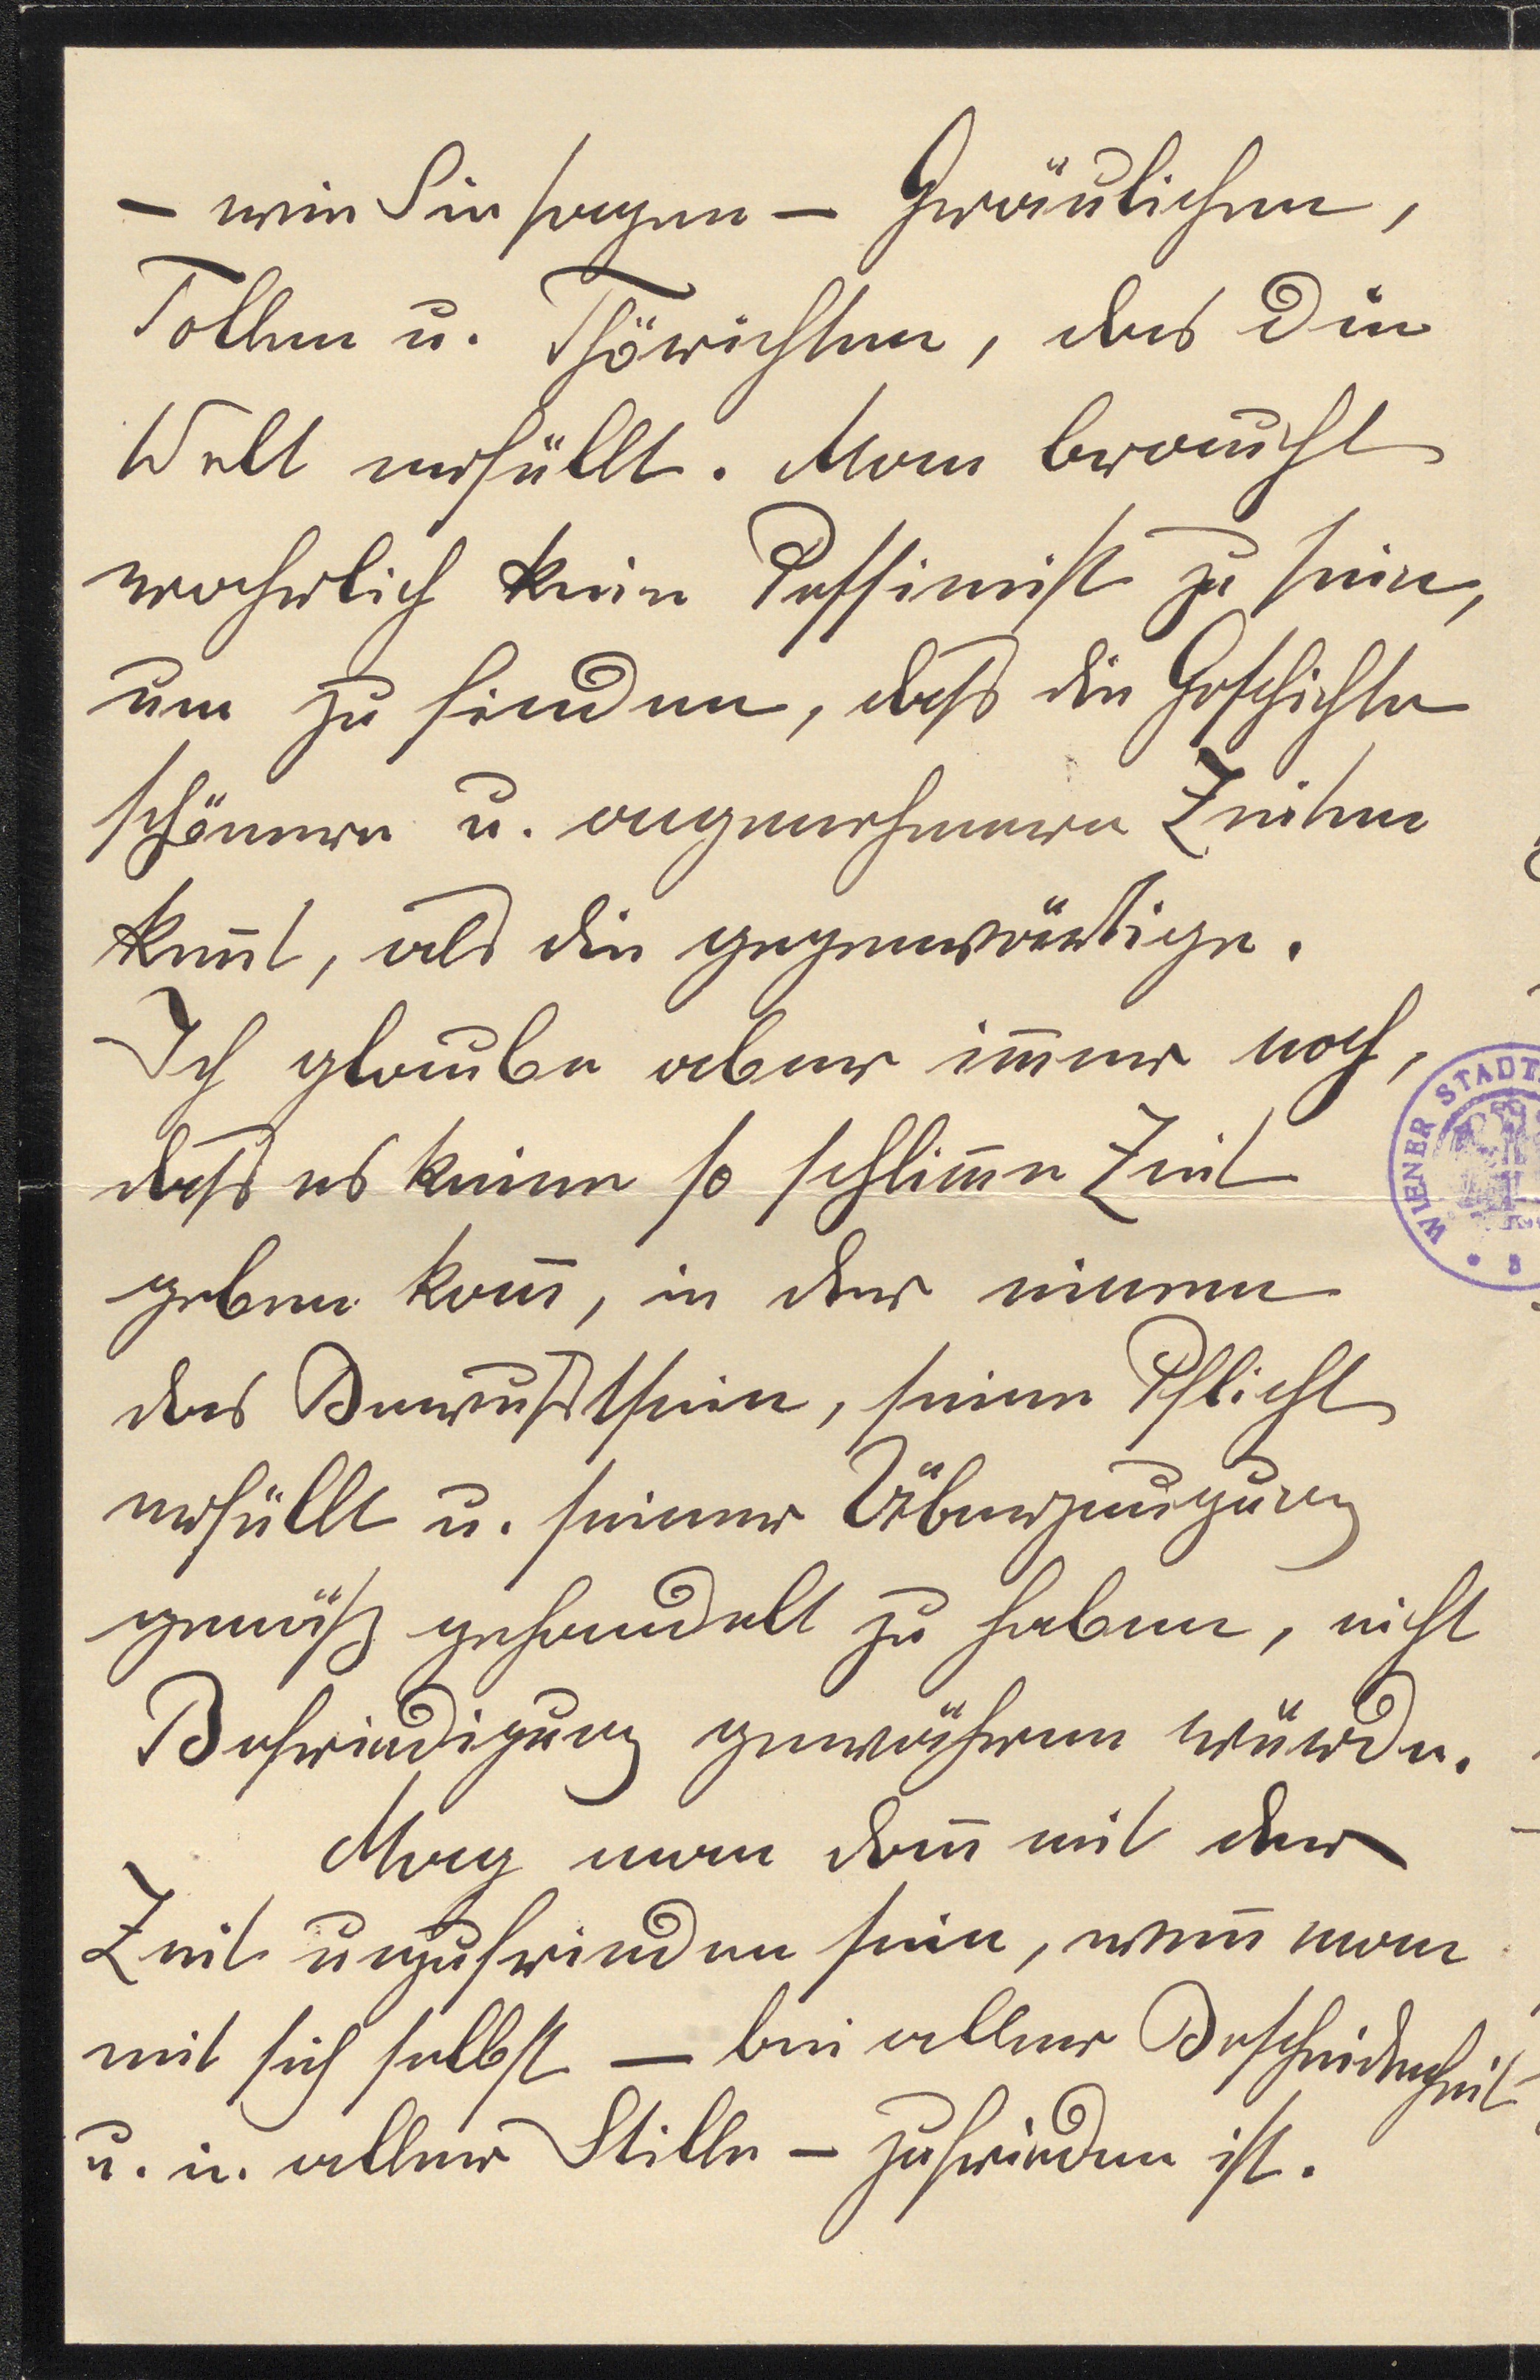 – wie Sie sagen – Gräulichen,
Tollen u. Thörichten, das die
Welt erfüllt. Man braucht
wahrlich kein Pessimist zu sein,
um zu finden, daß die Geschichte
schönere u. angenehmere Zeiten
keñt, als die gegenwärtige.
Ich glaube aber im̄er noch,
daß es keine so schlim̄e Zeit
geben kañ, in der einem
das Bewußtsein, seine Pflicht
erfüllt u. seiner Überzeugung
gemäß gehandelt zu haben, nicht
Befriedigung gewähren würde.
Mag man dañ mit der
Zeit unzufrieden sein, weñ man
mit sich selbst – bei aller Bescheidenheit
u. in aller Stille – zufrieden ist.
WIENER STADT